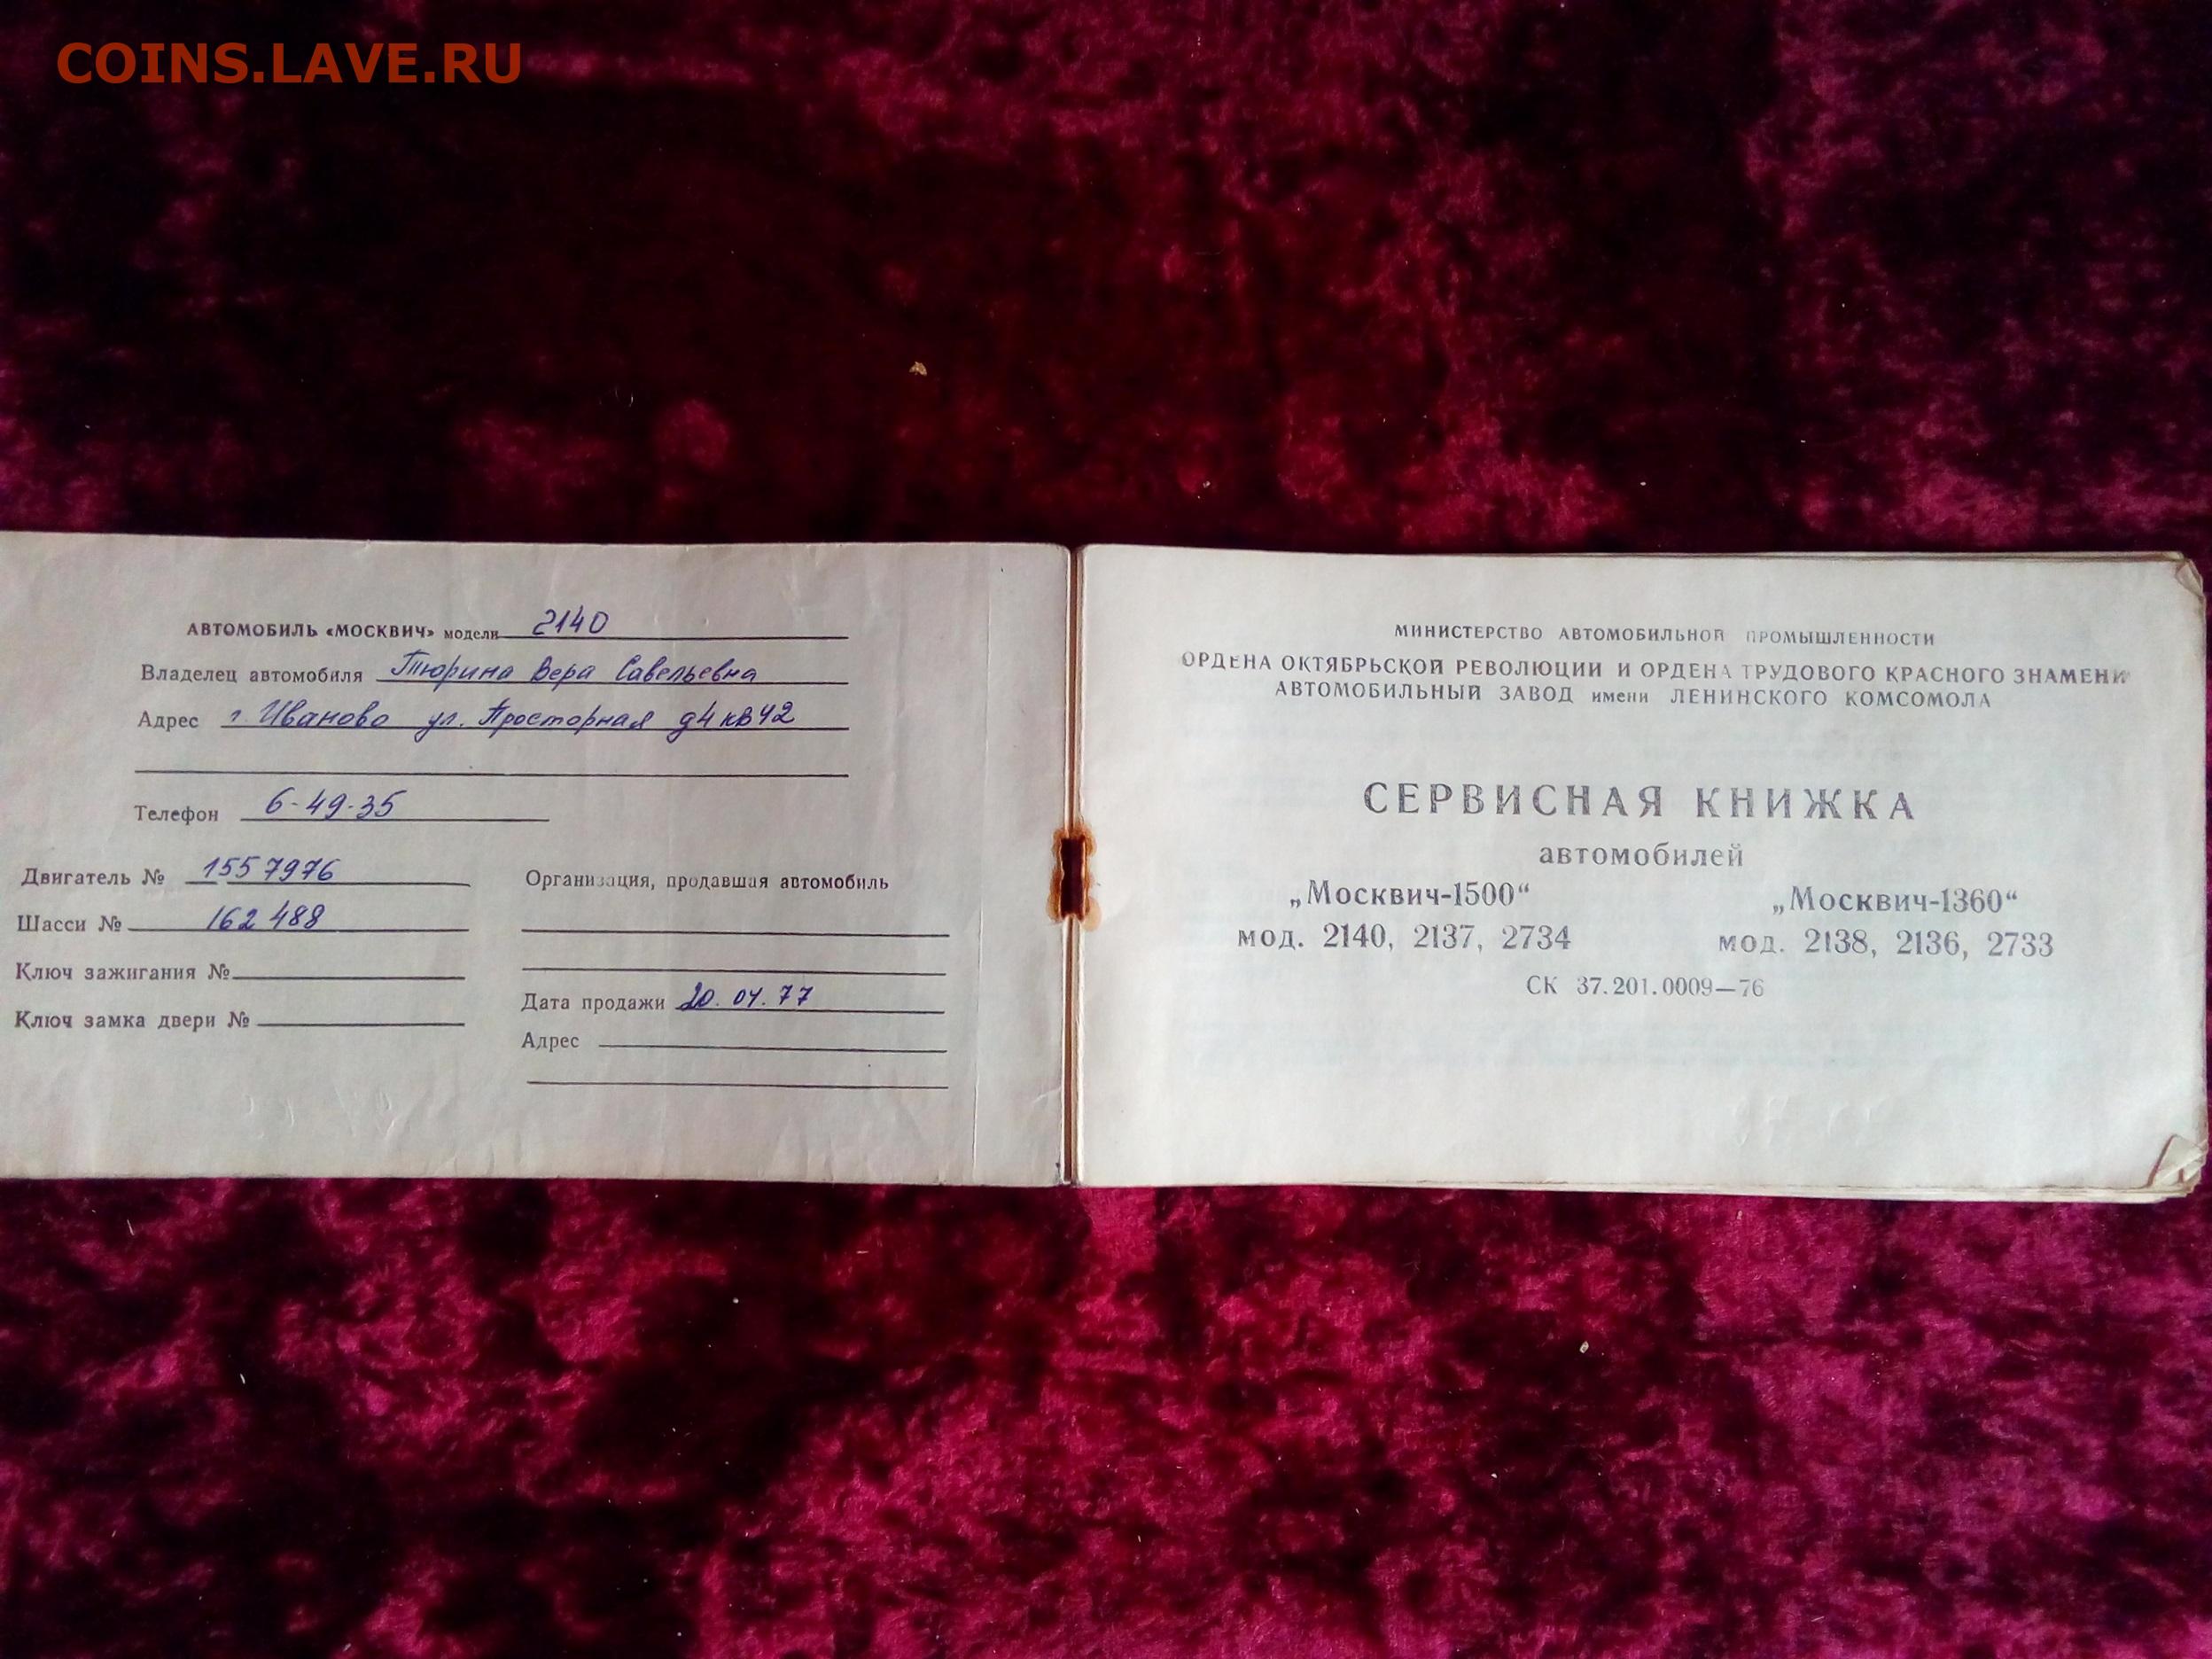 COINS.LAVE.RU
АВТОМОБИЛЬ «МОСКВИЧ» модели 2140
Владелец автомобиля Тюрина Вера Савельевна
Адрес г. Иваново ул. Просторная д4 кв42
Телефон 6-49-35
Двигатель № 1557976
Шасси № 162488
Ключ зажигания №
Ключ замка двери №
Организация, продавшая автомобиль
Дата продажи 20.04.77
Адрес
МИНИСТЕРСТВО АВТОМОБИЛЬНОЙ ПРОМЫШЛЕННОСТИ
ОРДЕНА ОКТЯБРЬСКОЙ РЕВОЛЮЦИИ И ОРДЕНА ТРУДОВОГО КРАСНОГО ЗНАМЕНИ
АВТОМОБИЛЬНЫЙ ЗАВОД имени ЛЕНИНСКОГО КОМСОМОЛА
СЕРВИСНАЯ КНИЖКА
автомобилей
„Москвич-1500“ „Москвич-1360“
мод. 2140, 2137, 2734 мод. 2138, 2136, 2733
СК 37.201.0009—76